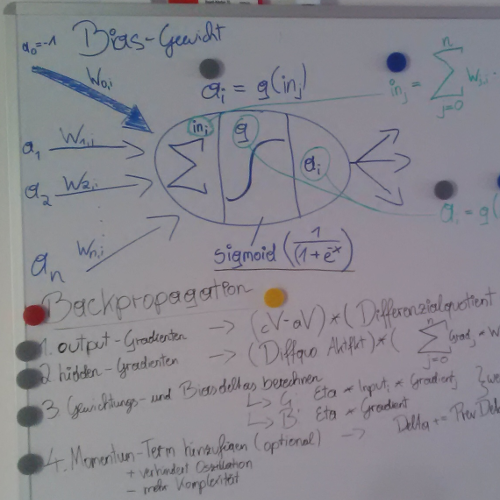 a₀=-1 Bias-Gewicht
W₀,ᵢ
aᵢ = g(inⱼ)
inⱼ = Σ Wⱼ,ᵢ
n
j=0
inⱼ g
a₁ W₁,ᵢ
aᵢ
a₂ W₂,ᵢ
aₙ Wₙ,ᵢ
aᵢ = g(
sigmoid (1/(1+e⁻ˣ))
Backpropagation
1. output-Gradienten → (cV-aV) * (Differenzialquotient
2 hidden-Gradienten → (Diffquo Aktfkt) * ( Σ Gradⱼ * W
n
j=0
3. Gewichtungs- und Biasdeltas berechnen
↳ G: Eta * Inputᵢ * Gradientⱼ
↳ B: Eta * Gradient
4. Momentum-Term hinzufügen (optional) → Delta += Prev Delt
+ verhindert Oszillation
- mehr Komplexität